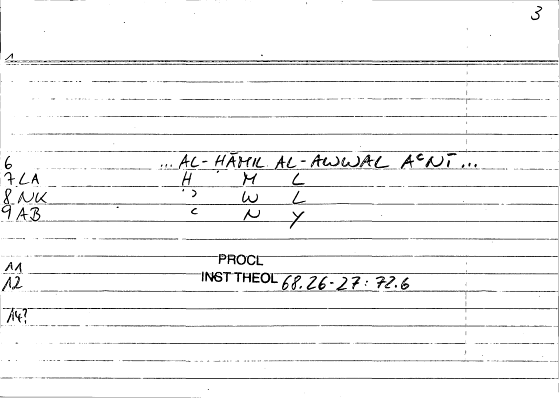 3
1
6 ... AL-ḤĀMIL AL-AWWAL AʿNĪ ...
7 LA Ḥ M L
8 NK ʾ W L
9 AB ʿ N Y
11 PROCL
12 INST THEOL 68.26-27: 72.6
14?